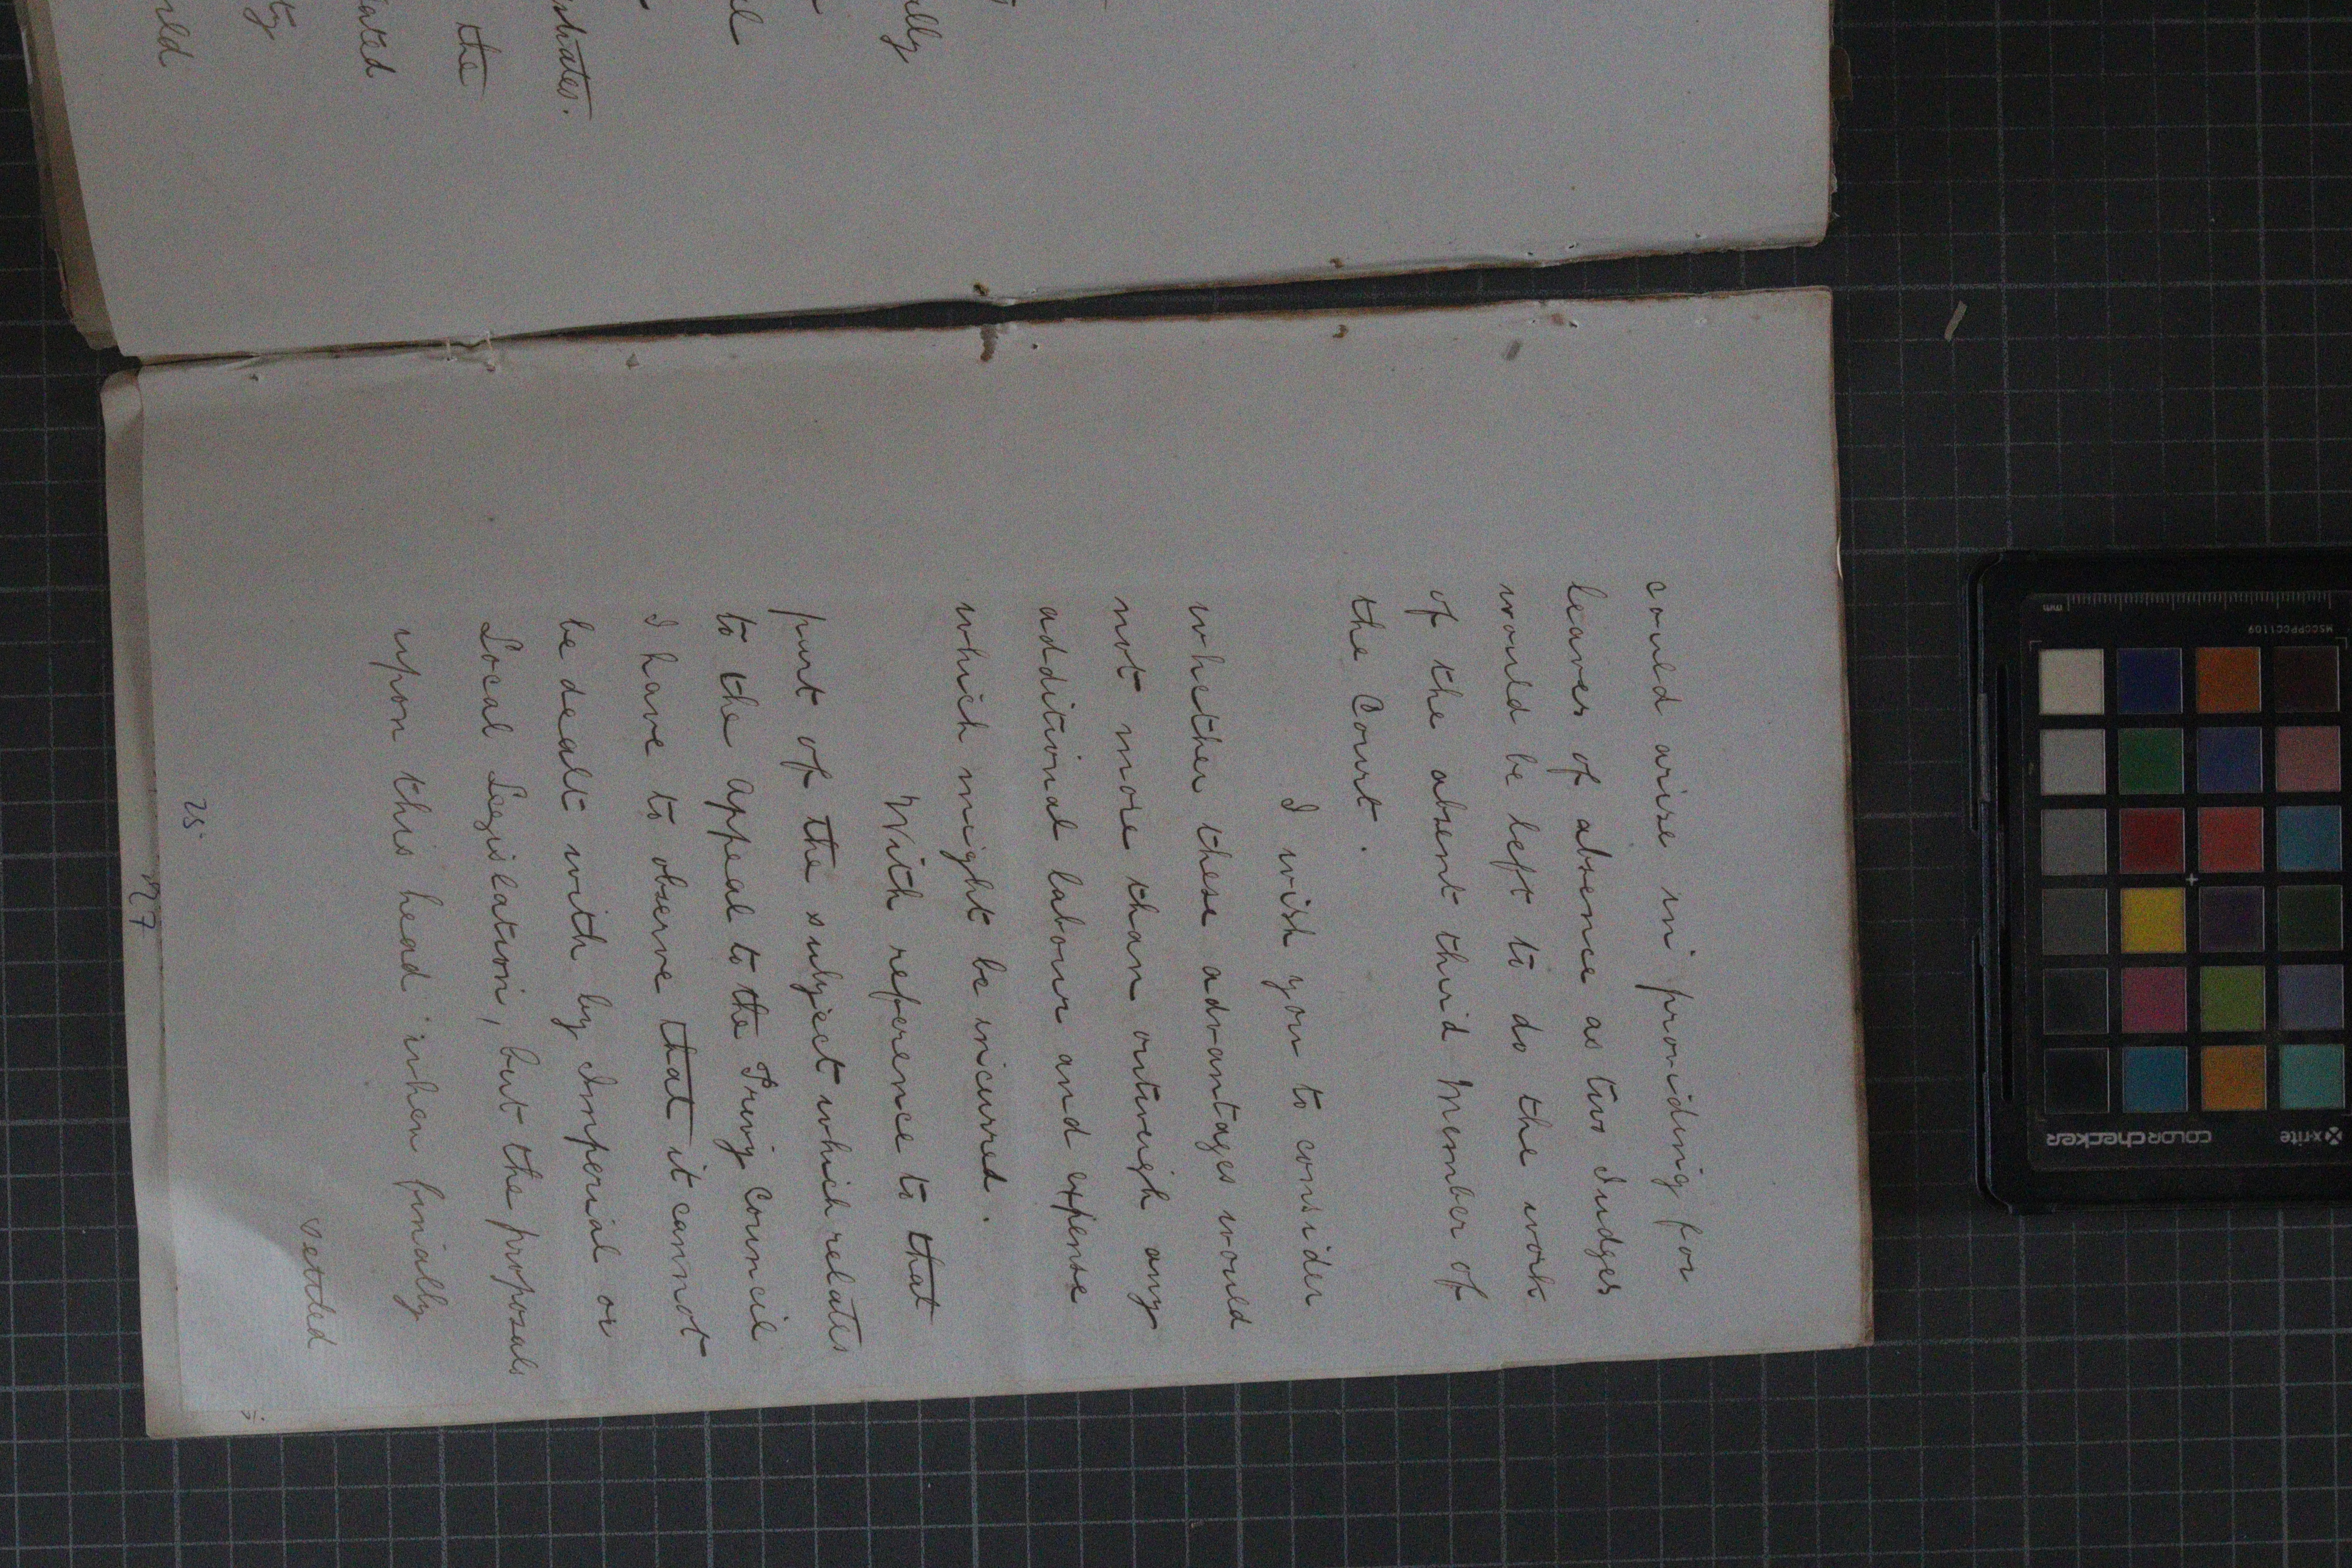 ally
al
istrates.
the
lated
ty
uld
could arise in providing for
leaves of absence as two Judges
would be left to do the work
of the absent third Member of
the Court.
I wish you to consider
whether these advantages would
not more than outweigh any
additional labour and expense
which might be incurred.
With reference to that
part of the subject which relates
to the appeal to the Privy Council
I have to observe that it cannot
be dealt with by Imperial or
Local Legislation, but the proposals
upon this head when finally
settled
25
27
mm
MSCCPPCC1109
x-rite
colorchecker